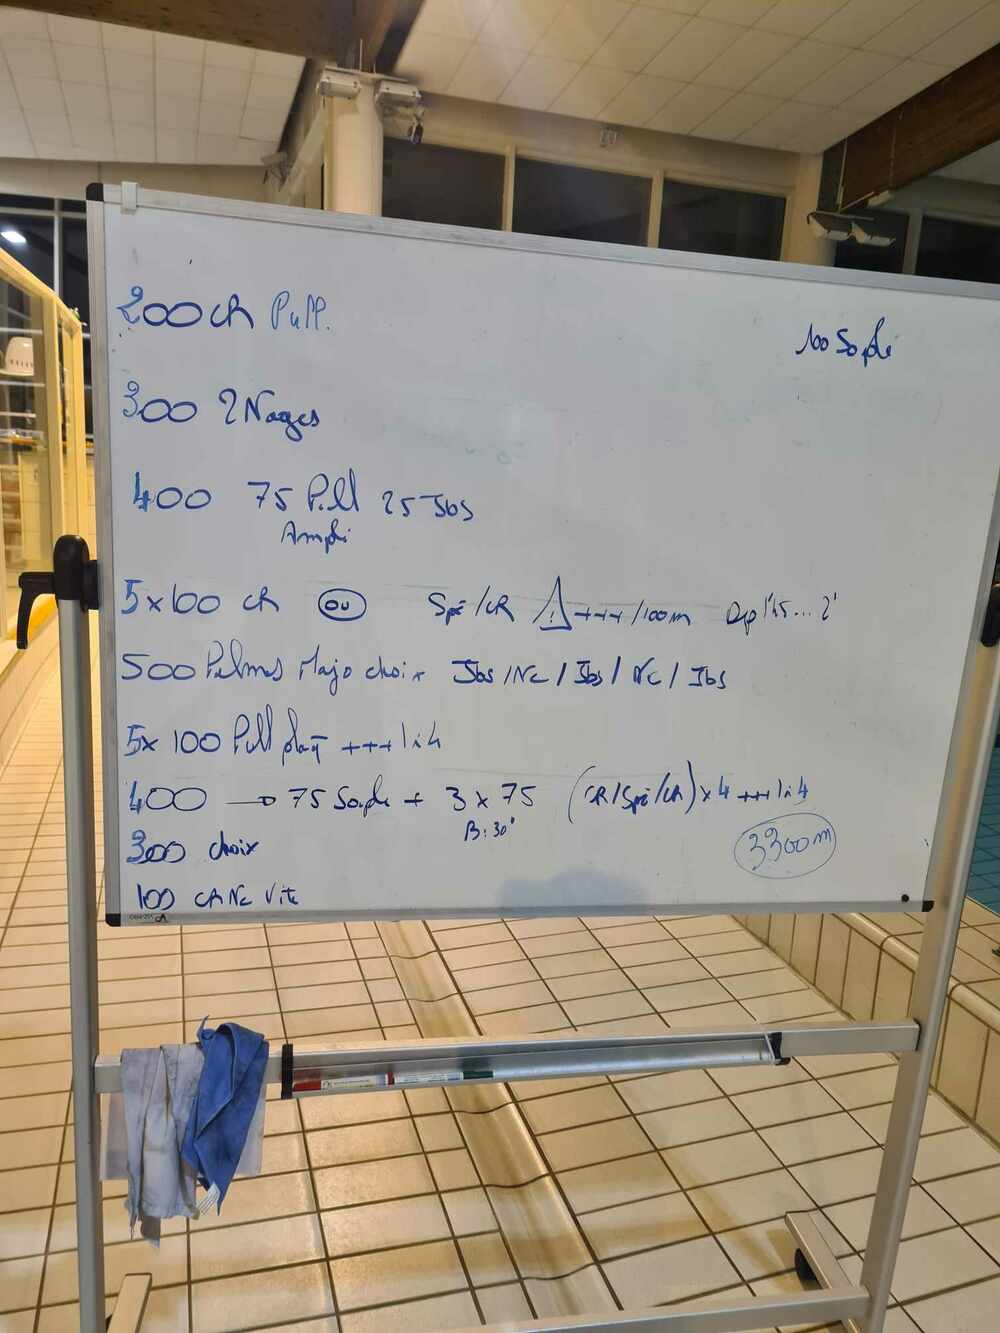 200 CR Pull.
100 Souple
300 2 Nages
400 75 Pull 25 Jbs
Ampli
5x100 CR OU Spé/CR ! +++/100m Dép 1'45...2'
500 Palmes Majo choix Jbs/NC/Jbs/NC/Jbs
5x100 Pull plaq +++ 1 à 4
400 → 75 Souple + 3 x 75 (CR/Spé/CR) x4 +++ 1 à 4
B: 30"
300 choix
3300m
100 CR NC Vite